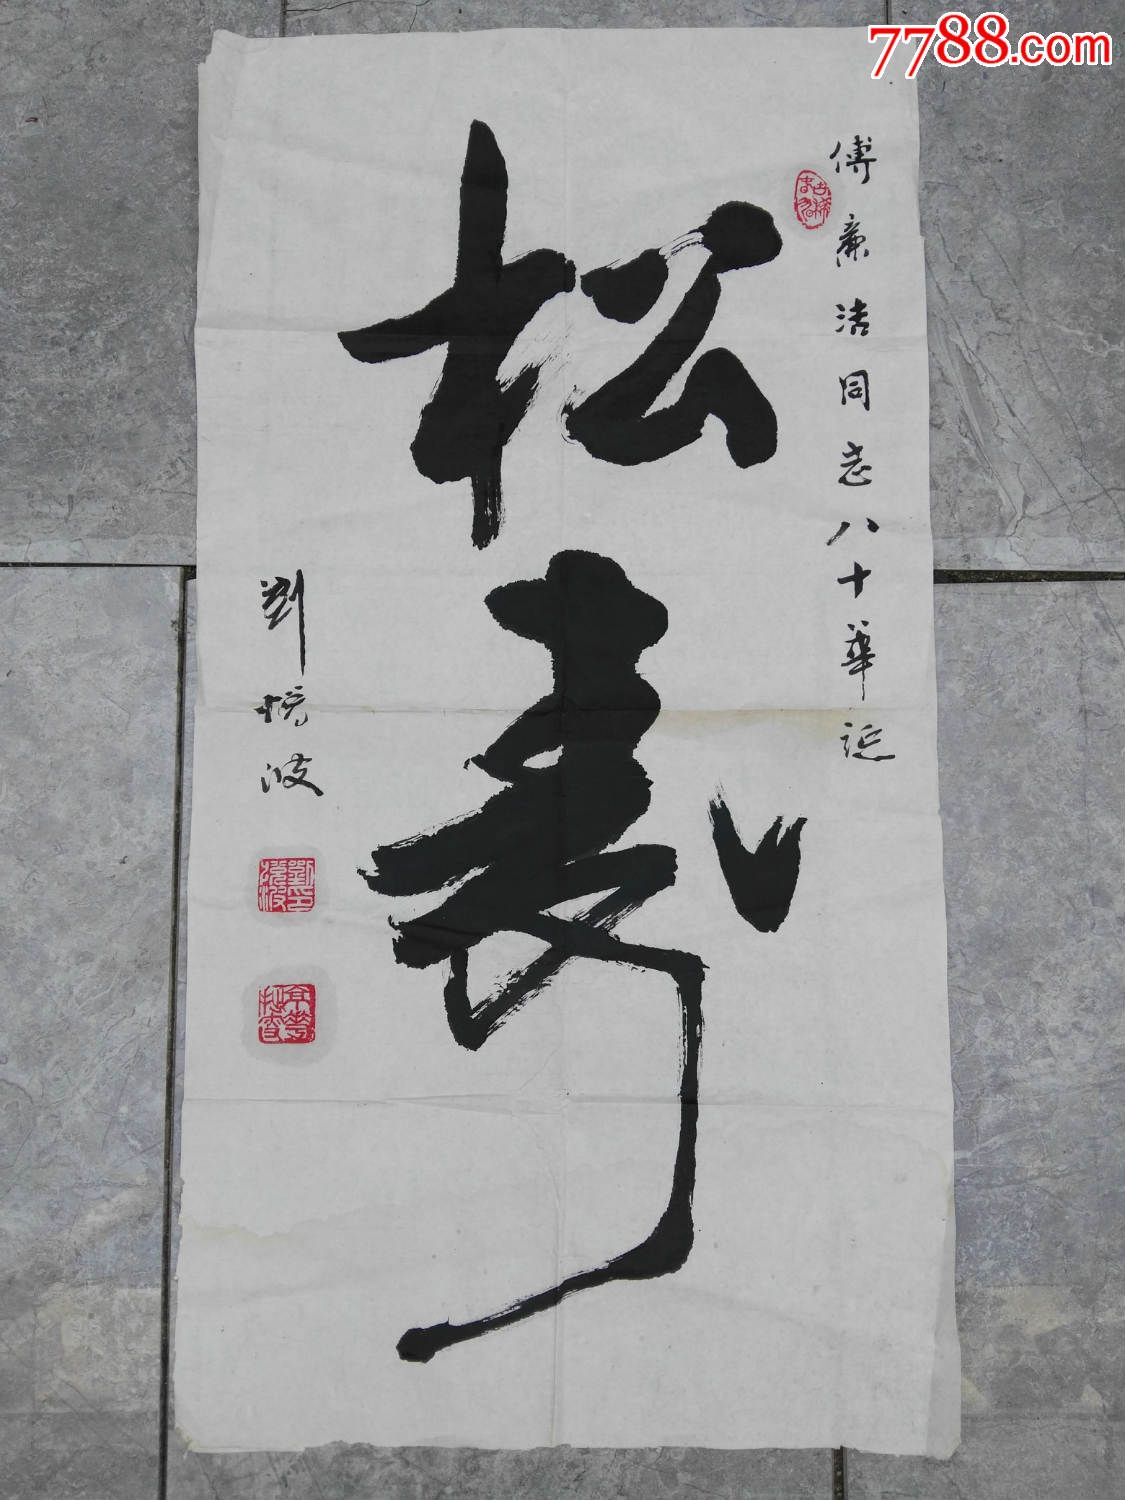 7788.com
傅廉洁同志八十华诞
松寿
劉境波